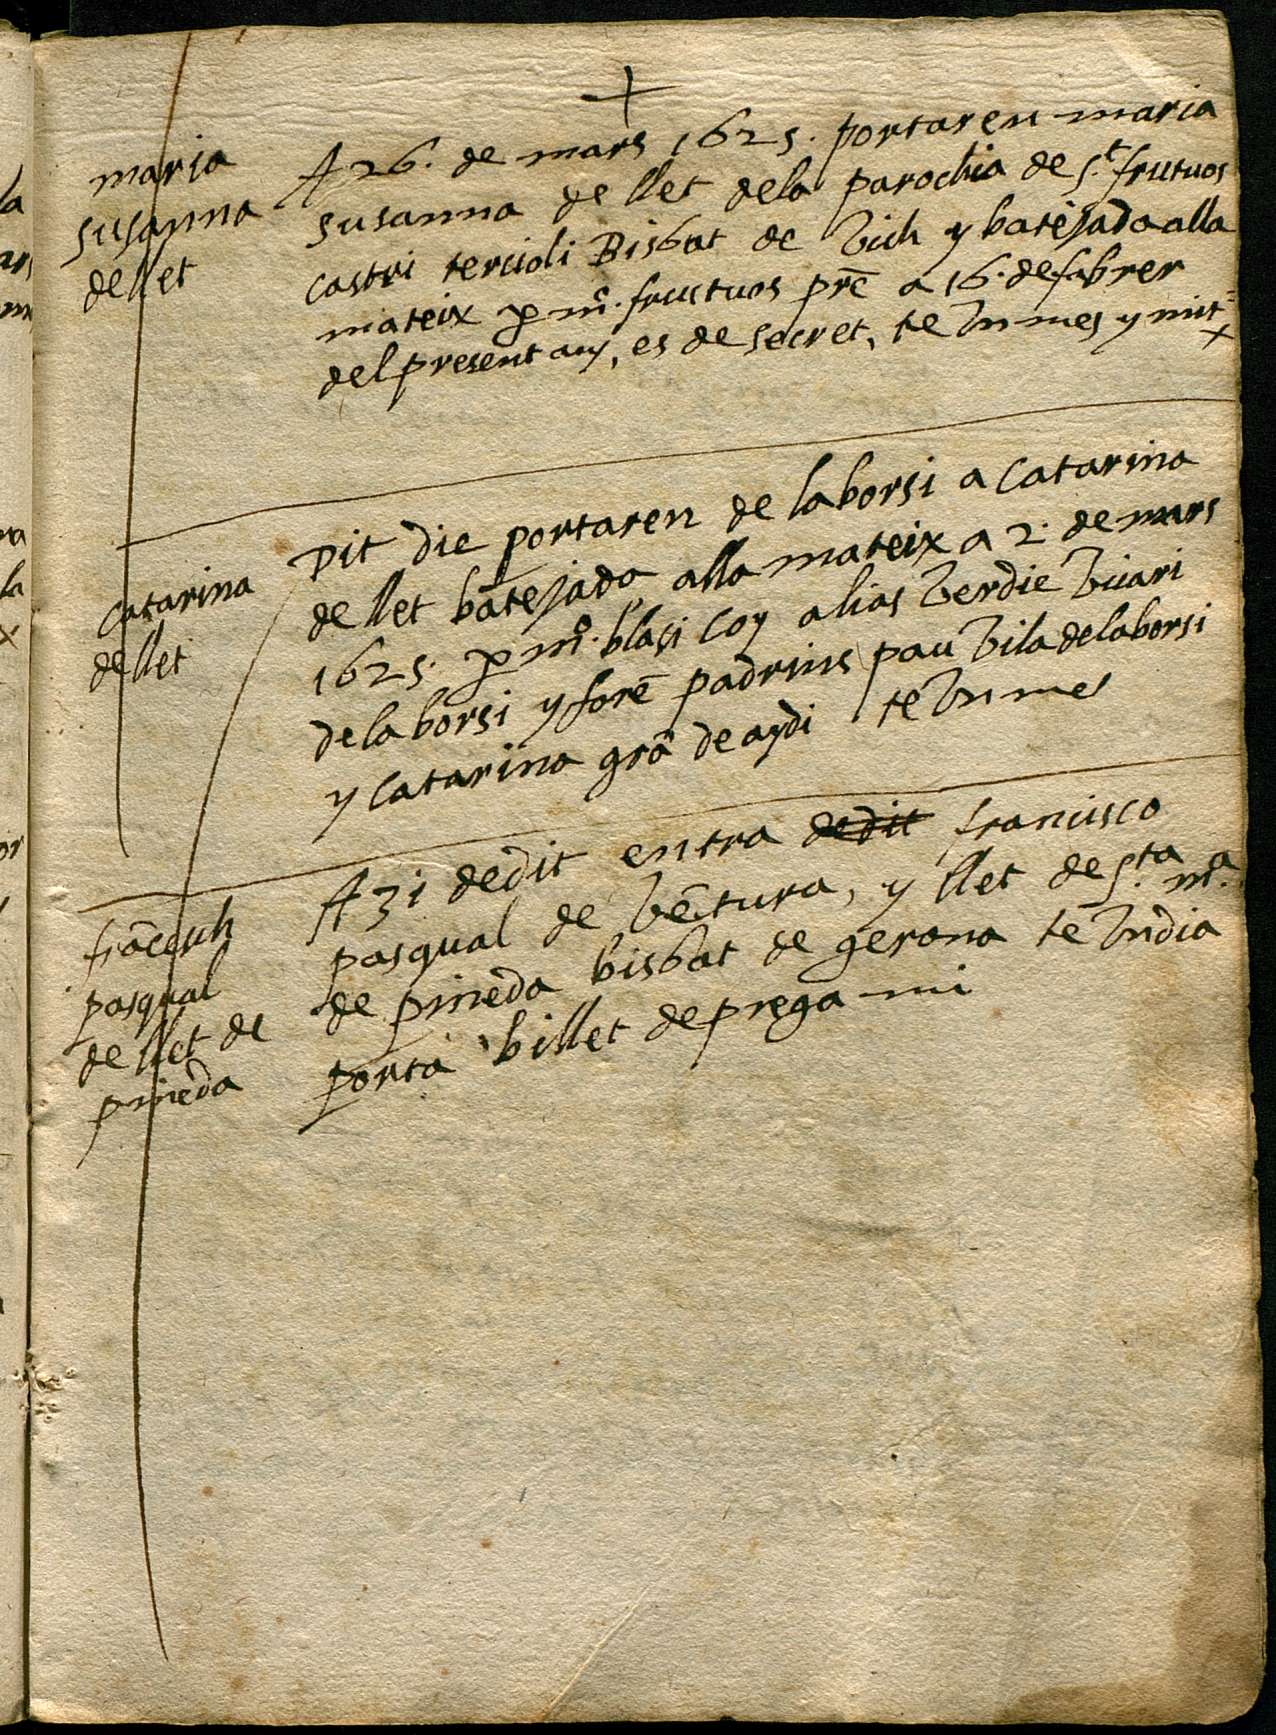 maria
susanna
de llet
A 26. de mars 1625. portaren maria
susanna de llet dela parochia de S.t frutuos
castri tercioli Bisbat de Vich y batejada alla
mateix p m.o fructuos prē a 16. de fabrer
del present any, es de secret, te Vn mes y mit
catarina
de llet
Dit die portaren de laborsi a catarina
de llet batejada alla mateix a 2. de mars
1625. p m.o blasi coy alias Verdie Vicari
de laborsi y forē padrins pau Vila de laborsi
y catarina grā de aydi te Vn mes
frācesch
pasqual
de llet de
pineda
A 31 dedit entra dedit francisco
pasqual de Vētura, y llet de S.ta m.a
de pineda bisbat de gerona te Vn dia
porta billet de prega mi